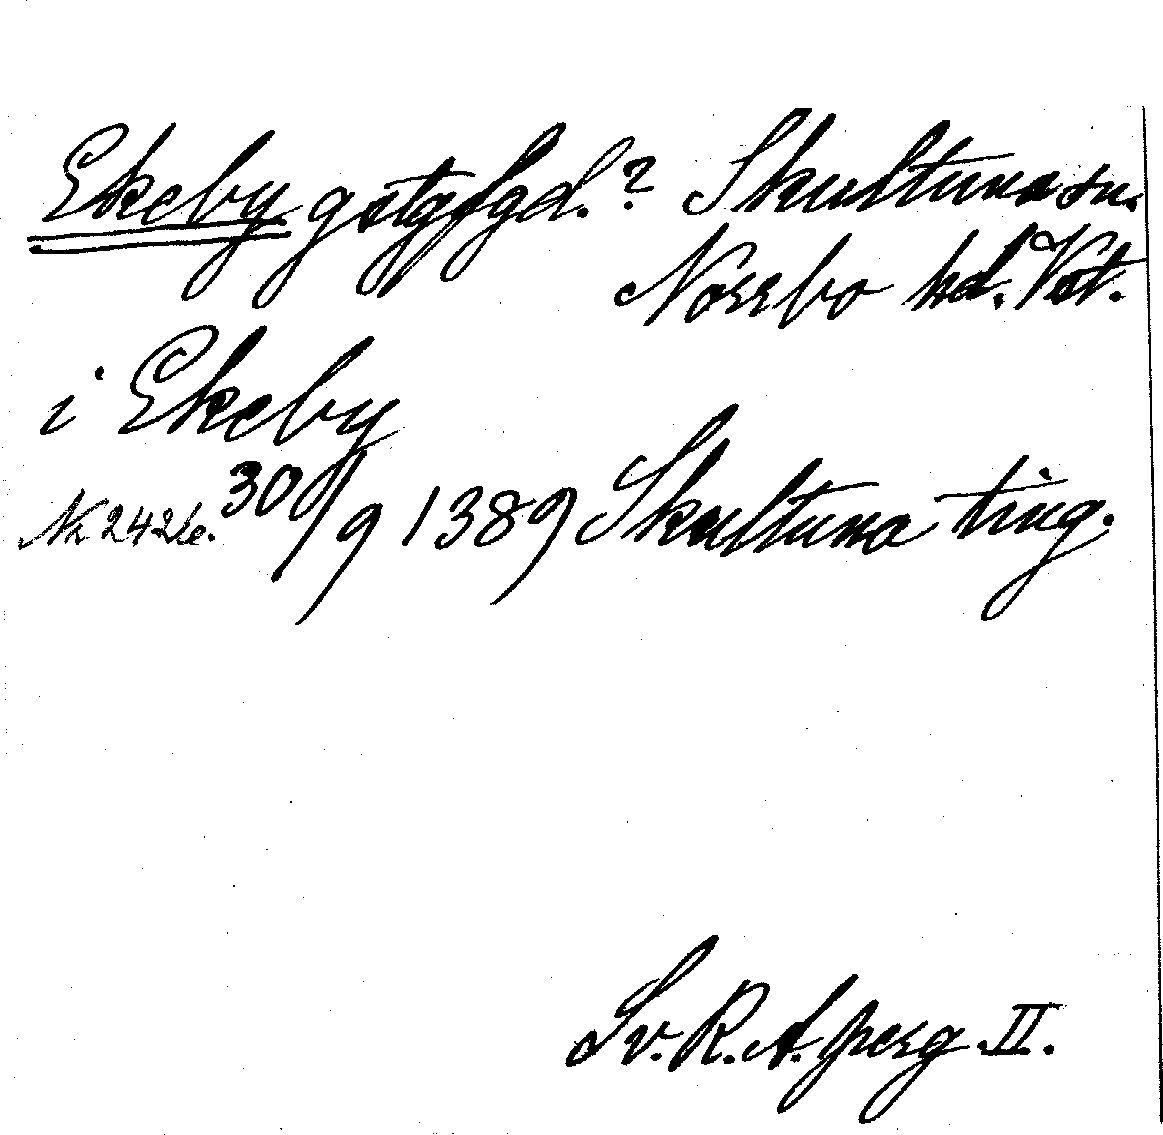 Ekeby gstgfgd.? Skultuna sn.
Norrbo hd. Vst.
i Ekeby
Nr 2426. 30/9 1389 Skultuna ting.
Sv. R. A. perg. II.